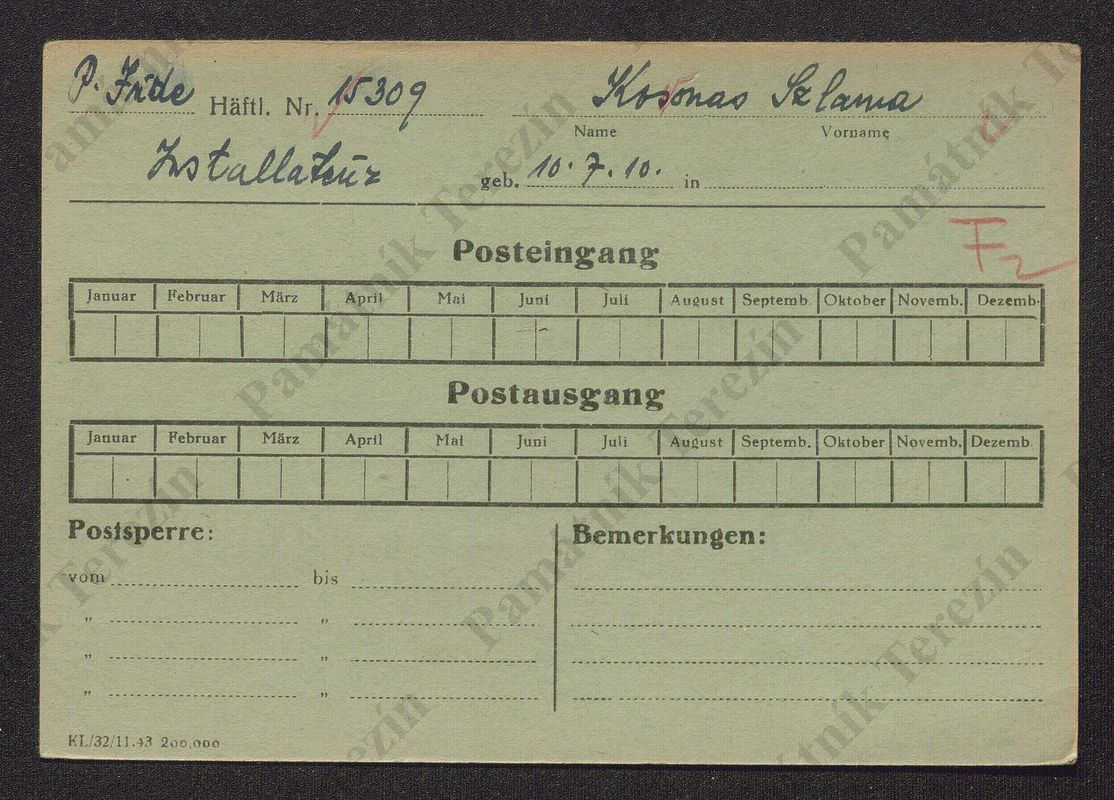 P. Jude Häftl. Nr. 15309 Kosonas Szlama
Name Vorname
Installateur geb. 10. 7. 10. in
Fz
Posteingang
Januar Februar März April Mai Juni Juli August Septemb. Oktober Novemb. Dezemb.
Postausgang
Januar Februar März April Mai Juni Juli August Septemb. Oktober Novemb. Dezemb.
Postsperre: Bemerkungen:
vom bis
„ „
„ „
„ „
KL/32/11.43 200,000
Památník Terezín